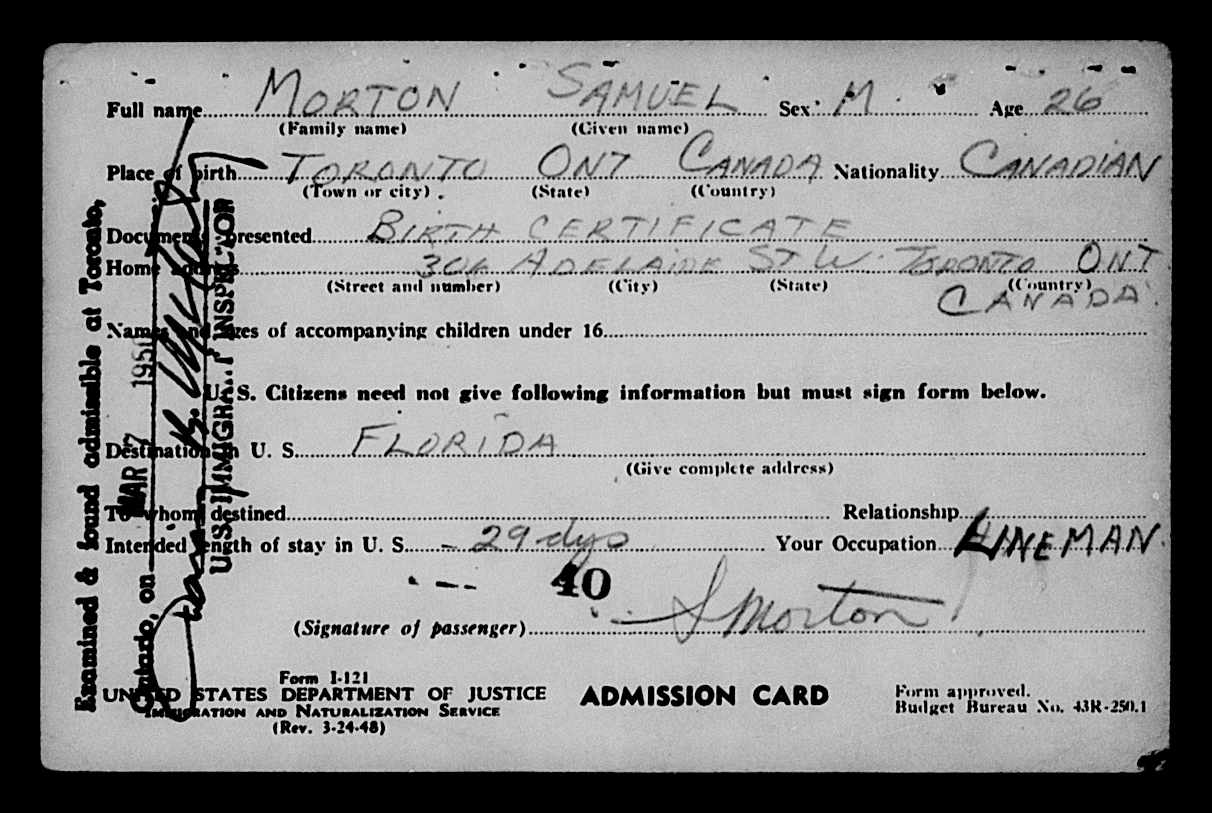 Full name MORTON SAMUEL Sex M Age 26
(Family name) (Given name)
Place of birth TORONTO ONT CANADA Nationality CANADIAN
(Town or city) (State) (Country)
Documents presented BIRTH CERTIFICATE
Home address 306 ADELAIDE ST W. TORONTO ONT
(Street and number) (City) (State) (Country)
CANADA.
Names and ages of accompanying children under 16
U. S. Citizens need not give following information but must sign form below.
Destination in U. S. FLORIDA
(Give complete address)
To whom destined Relationship
Intended length of stay in U. S. - 29 dys Your Occupation LINEMAN.
40
(Signature of passenger) S Morton
Form I-121
UNITED STATES DEPARTMENT OF JUSTICE ADMISSION CARD Form approved.
IMMIGRATION AND NATURALIZATION SERVICE Budget Bureau No. 43R-250.1
(Rev. 3-24-48)
Examined & found admissible at Toronto,
Ontario, on MAR 7 1950
U.S. IMMIGRANT INSPECTOR